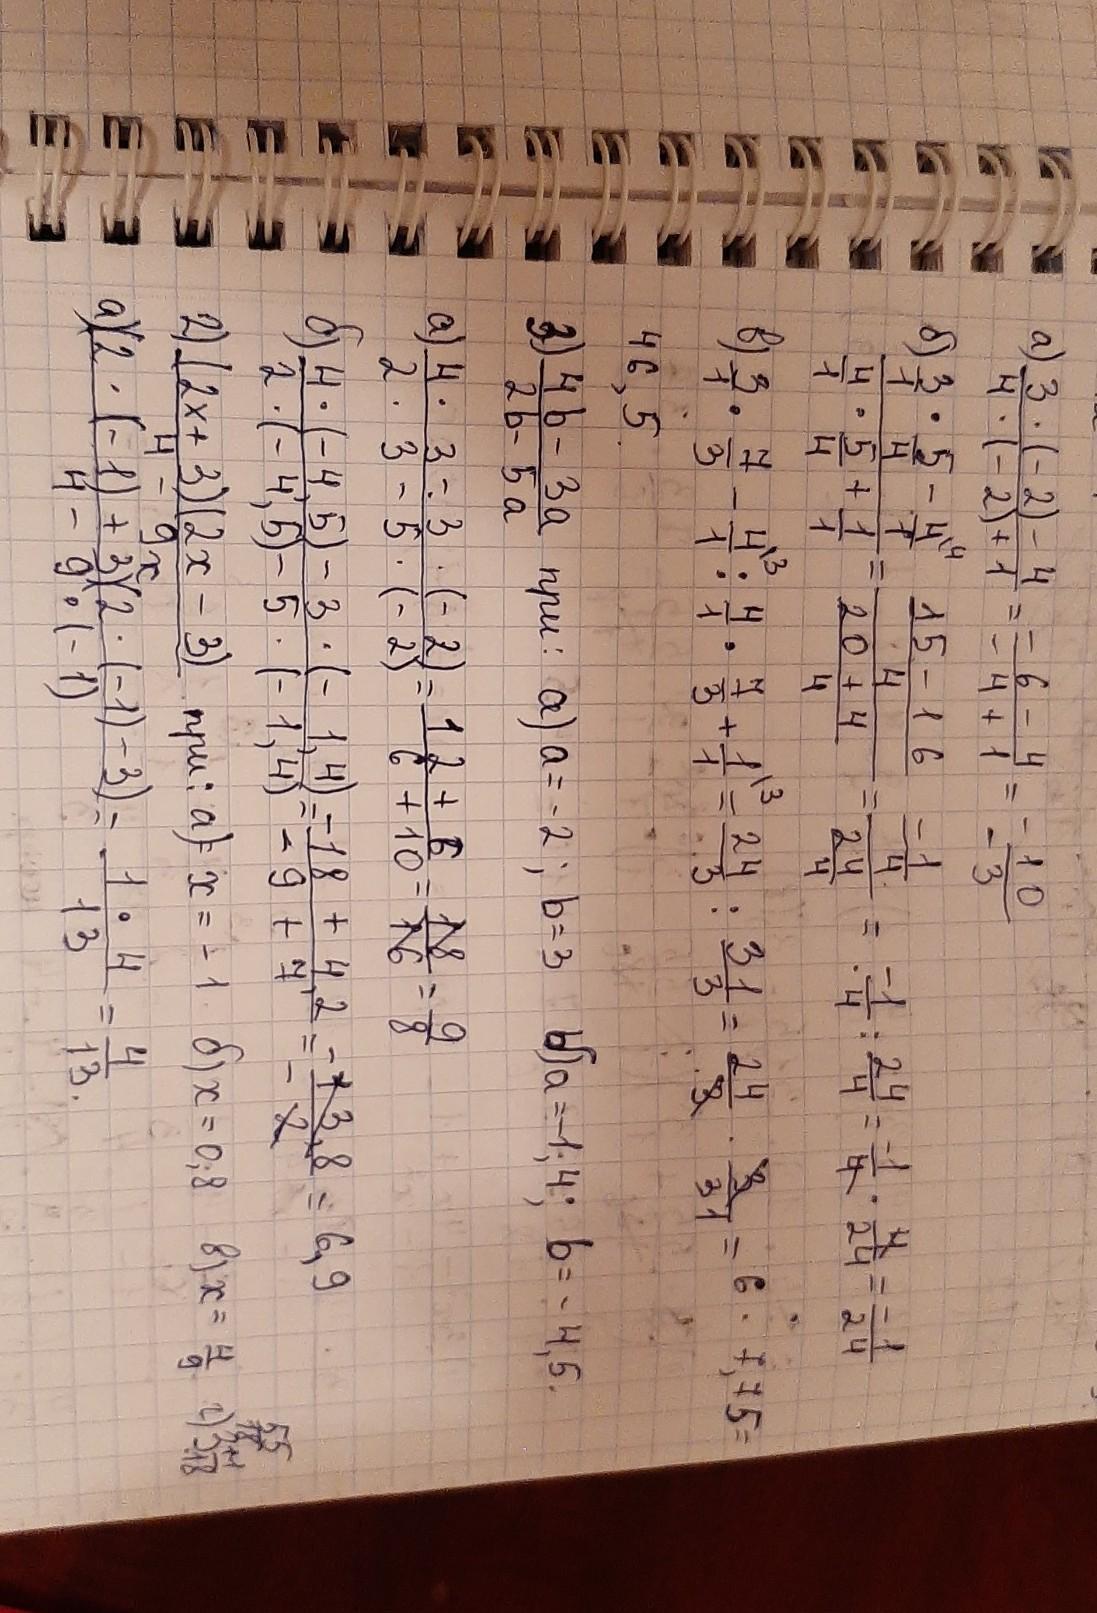 а) 3 · (-2) - 4 / 4 · (-2) + 1 = -6 - 4 / -4 + 1 = -10 / -3
б) 3/1 · 5/4 - 4/1 \4 / 4/1 · 5/4 + 1/1 = 15 - 16 / 4 / 20 + 4 / 4 = -1/4 / 24/4 = -1/4 : 24/4 = -1/4 · 4/24 = -1/24
в) 3/1 · 7/3 - 4/1 \3 : 4/1 · 7/3 + 1/1 \3 = 24/3 : 31/3 = 24/3 · 3/31 = 6 · 7,75 =
46,5.
3) 4b - 3a / 2b - 5a при: а) a = -2; b = 3 б) a = -1,4; b = -4,5.
а) 4 · 3 - 3 · (-2) / 2 · 3 - 5 · (-2) = 12 + 6 / 6 + 10 = 18/16 = 9/8
б) 4 · (-4,5) - 3 · (-1,4) / 2 · (-4,5) - 5 · (-1,4) = -18 + 4,2 / -9 + 7 = -13,8 / -2 = 6,9
2) (2x + 3)(2x - 3) / 4 - 9x при: а) x = -1 б) x = 0,8 в) x = 4/9
а) (2 · (-1) + 3)(2 · (-1) - 3) / 4 - 9 · (-1) = - 1 · 4 / 13 = 4/13.